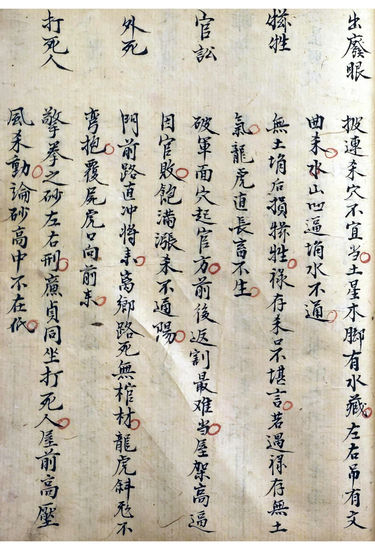 出廢眼
披連来穴不宜当土星木脚有水藏左右吊有文
曲来水山凹逼堝水不通
犠牲
無土堝后損犠牲禄存来口不堪言若遇禄存無土
氣龍虎直長畜不生
官訟
破軍面穴起官方前後返割最难当屋架高逼
因官敗飽满漲来不通陽
外死
門前路直冲将来离鄉路死無棺材龍虎斜飛不
弯抱覆屍虎口向前来
打死人
擎拳之砂左右刑廉貞同坐打死人屋前高壓
風来動論砂高中不在低